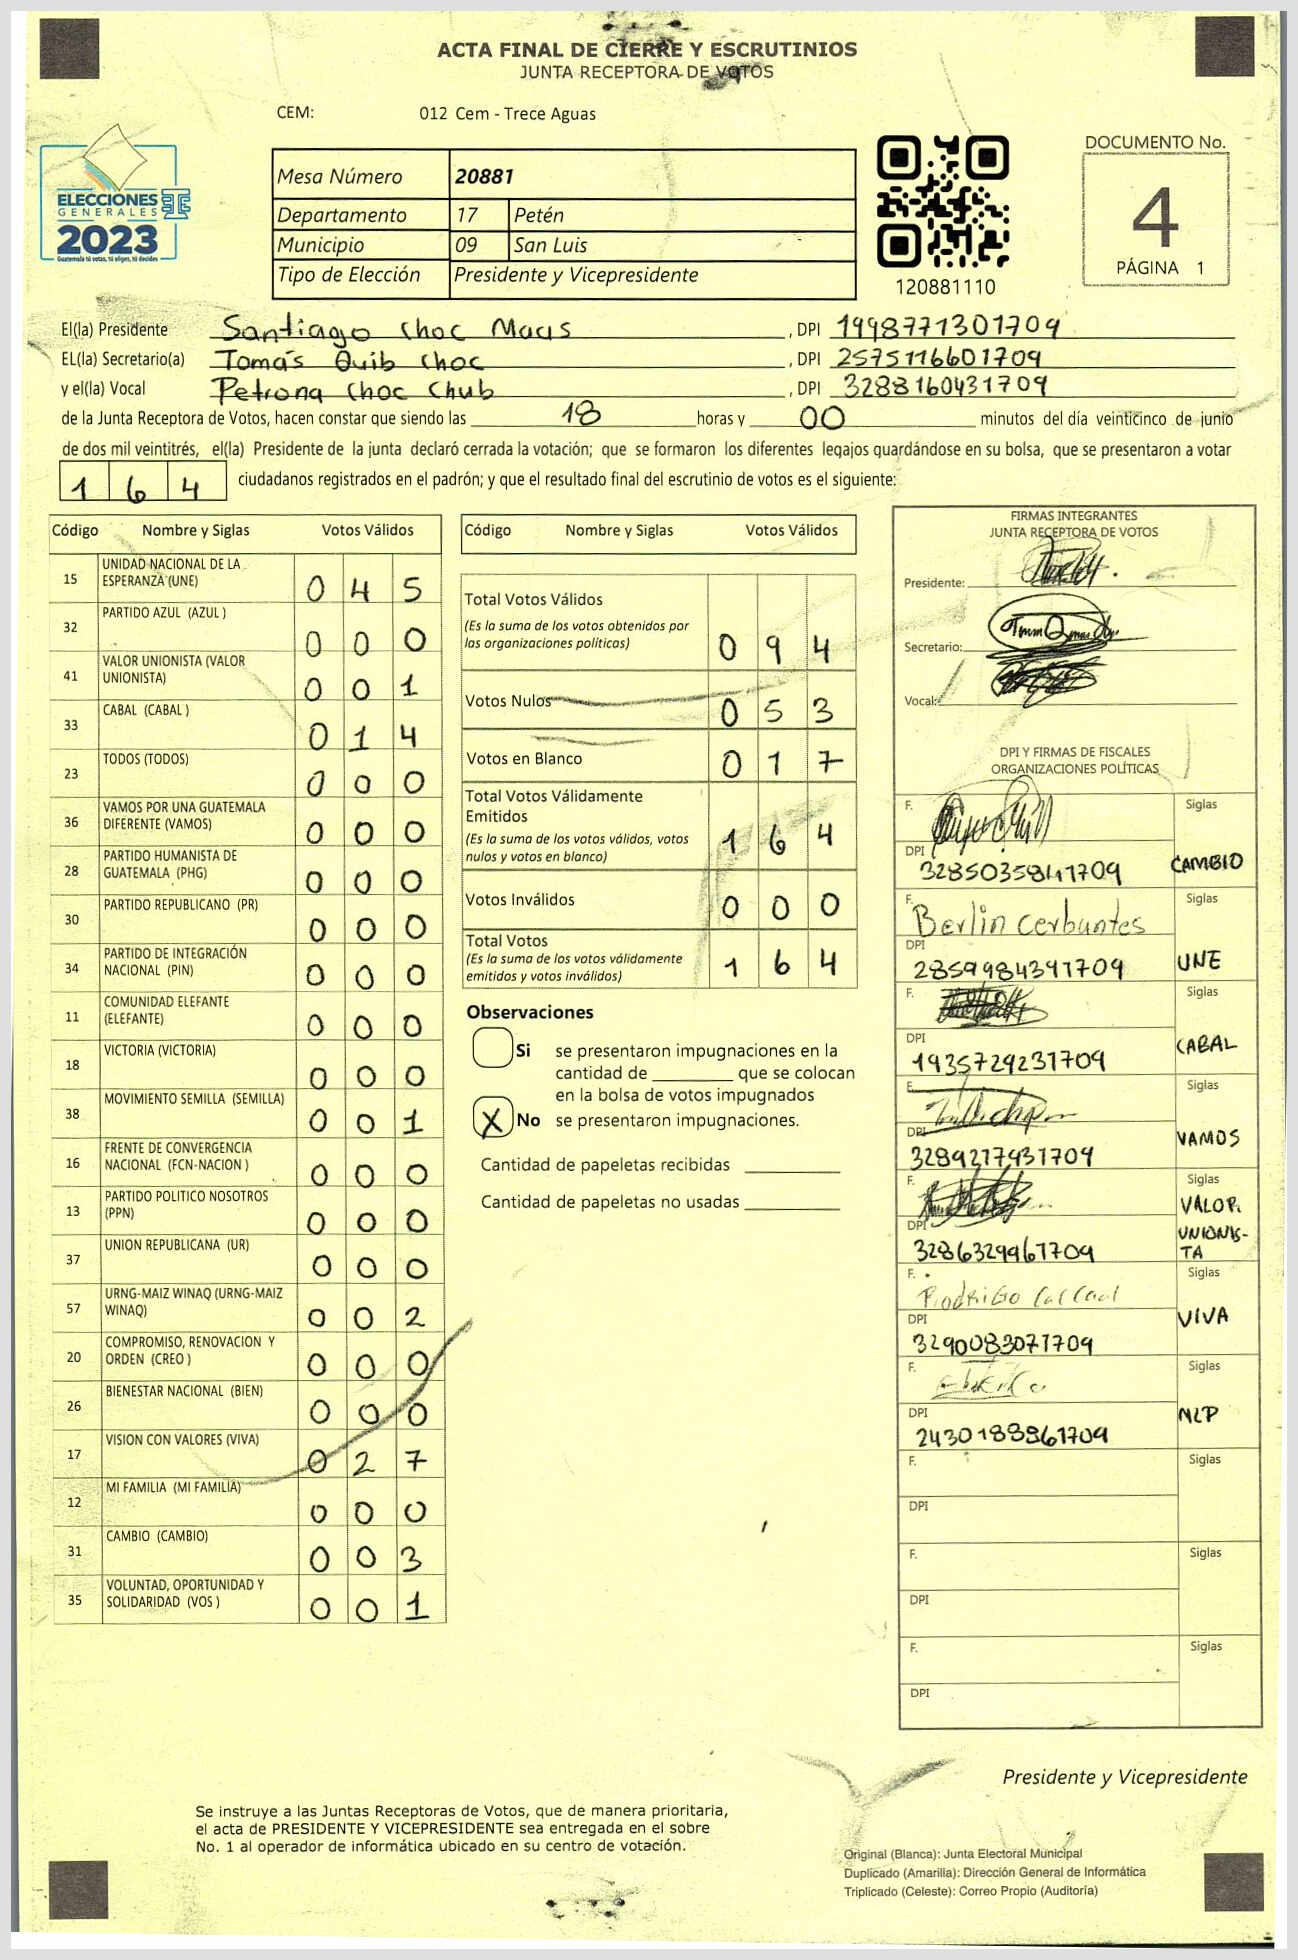 ACTA FINAL DE CIERRE Y ESCRUTINIOS
JUNTA RECEPTORA DE VOTOS
CEM: 012 Cem - Trece Aguas
ELECCIONES
GENERALES
2023
Guatemala tú votas, tú eliges, tú decides
Mesa Número 20881
Departamento 17 Petén
Municipio 09 San Luis
Tipo de Elección Presidente y Vicepresidente
120881110
DOCUMENTO No.
4
PÁGINA 1
El(la) Presidente Santiago Choc Maas , DPI 1998771301709
EL(la) Secretario(a) Tomás Quib Choc , DPI 2575116601709
y el(la) Vocal Petrona Choc Chub , DPI 3288160431709
de la Junta Receptora de Votos, hacen constar que siendo las 18 horas y 00 minutos del día veinticinco de junio
de dos mil veintitrés, el(la) Presidente de la junta declaró cerrada la votación; que se formaron los diferentes legajos guardándose en su bolsa, que se presentaron a votar
1 6 4 ciudadanos registrados en el padrón; y que el resultado final del escrutinio de votos es el siguiente:
Código Nombre y Siglas Votos Válidos
15 UNIDAD NACIONAL DE LA ESPERANZA (UNE) 0 4 5
32 PARTIDO AZUL (AZUL ) 0 0 0
41 VALOR UNIONISTA (VALOR UNIONISTA) 0 0 1
33 CABAL (CABAL ) 0 1 4
23 TODOS (TODOS) 0 0 0
36 VAMOS POR UNA GUATEMALA DIFERENTE (VAMOS) 0 0 0
28 PARTIDO HUMANISTA DE GUATEMALA (PHG) 0 0 0
30 PARTIDO REPUBLICANO (PR) 0 0 0
34 PARTIDO DE INTEGRACIÓN NACIONAL (PIN) 0 0 0
11 COMUNIDAD ELEFANTE (ELEFANTE) 0 0 0
18 VICTORIA (VICTORIA) 0 0 0
38 MOVIMIENTO SEMILLA (SEMILLA) 0 0 1
16 FRENTE DE CONVERGENCIA NACIONAL (FCN-NACION ) 0 0 0
13 PARTIDO POLITICO NOSOTROS (PPN) 0 0 0
37 UNION REPUBLICANA (UR) 0 0 0
57 URNG-MAIZ WINAQ (URNG-MAIZ WINAQ) 0 0 2
20 COMPROMISO, RENOVACION Y ORDEN (CREO ) 0 0 0
26 BIENESTAR NACIONAL (BIEN) 0 0 0
17 VISION CON VALORES (VIVA) 0 2 7
12 MI FAMILIA (MI FAMILIA) 0 0 0
31 CAMBIO (CAMBIO) 0 0 3
35 VOLUNTAD, OPORTUNIDAD Y SOLIDARIDAD (VOS ) 0 0 1
Código Nombre y Siglas Votos Válidos
Total Votos Válidos
(Es la suma de los votos obtenidos por
las organizaciones políticas) 0 9 4
Votos Nulos 0 5 3
Votos en Blanco 0 1 7
Total Votos Válidamente
Emitidos
(Es la suma de los votos válidos, votos
nulos y votos en blanco) 1 6 4
Votos Inválidos 0 0 0
Total Votos
(Es la suma de los votos válidamente
emitidos y votos inválidos) 1 6 4
Observaciones
Si se presentaron impugnaciones en la
cantidad de ________ que se colocan
en la bolsa de votos impugnados
X No se presentaron impugnaciones.
Cantidad de papeletas recibidas
Cantidad de papeletas no usadas
FIRMAS INTEGRANTES
JUNTA RECEPTORA DE VOTOS
Presidente:
Secretario:
Vocal:
DPI Y FIRMAS DE FISCALES
ORGANIZACIONES POLÍTICAS
F. Siglas
DPI 3285035841709 CAMBIO
F. Berlin Cerbantes Siglas
DPI 2859984391709 UNE
F. Siglas
DPI 1935729231709 CABAL
F. Siglas
DPI 3289217931709 VAMOS
F. Siglas
DPI 3286329961709 VALOR UNIONIS-TA
F. Rodrigo Siglas
DPI 3290083071709 VIVA
F. Siglas
DPI 2430188961709 MLP
F. Siglas
DPI
F. Siglas
DPI
F. Siglas
DPI
Presidente y Vicepresidente
Se instruye a las Juntas Receptoras de Votos, que de manera prioritaria,
el acta de PRESIDENTE Y VICEPRESIDENTE sea entregada en el sobre
No. 1 al operador de informática ubicado en su centro de votación.
Original (Blanca): Junta Electoral Municipal
Duplicado (Amarilla): Dirección General de Informática
Triplicado (Celeste): Correo Propio (Auditoría)